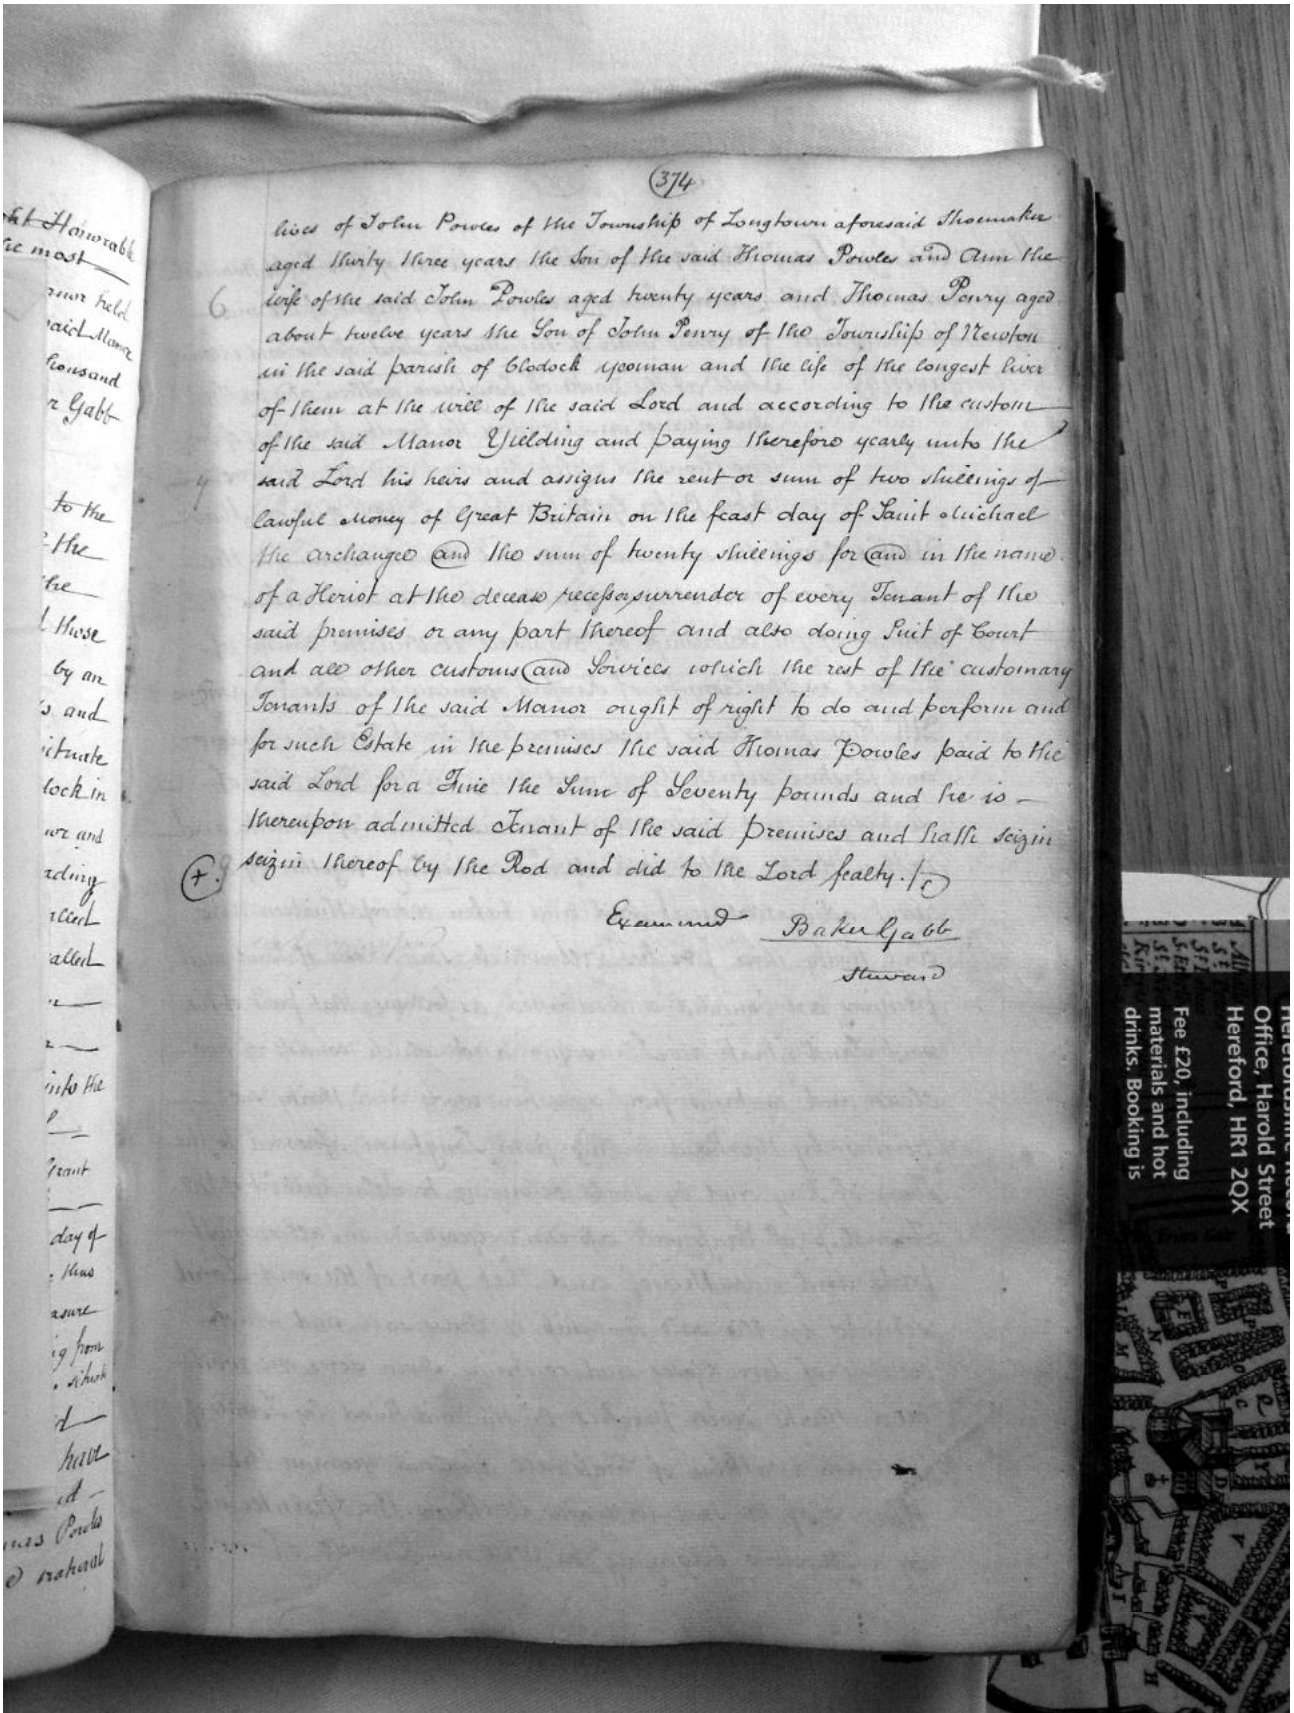 ht Honorable
he most
anor held
said Manor
housand
r Gabb
to the
the
the
those
by an
s and
ituate
lock in
and
ading
alled
into the
Grant
day of
thus
asure
g from
have
mas Powles
natural
(374)
lives of John Powles of the Township of Longtown aforesaid Shoemaker
aged thirty three years the Son of the said Thomas Powles and Ann the
6 wife of the said John Powles aged twenty years and Thomas Penry aged
about twelve years the Son of John Penry of the Township of Newton
in the said parish of Clodock yeoman and the life of the longest liver
of them at the will of the said Lord and according to the custom
of the said Manor Yielding and paying therefore yearly unto the
said Lord his heirs and assigns the rent or sum of two shillings of
lawful Money of Great Britain on the feast day of Saint Michael
the archangel and the sum of twenty shillings for and in the name
of a Heriot at the decease recess or surrender of every Tenant of the
said premises or any part thereof and also doing Suit of Court
and all other customs and Services which the rest of the customary
Tenants of the said Manor ought of right to do and perform and
for such Estate in the premises the said Thomas Powles paid to the
said Lord for a Fine the Sum of Seventy pounds and he is
thereupon admitted Tenant of the said premises and hath seizin
+ seizin thereof by the Rod and did to the Lord fealty.
Examined Baker Gabb
Steward
Herefordshire Record
Office, Harold Street
Hereford, HR1 2QX
Fee £20, including
materials and hot
drinks. Booking is